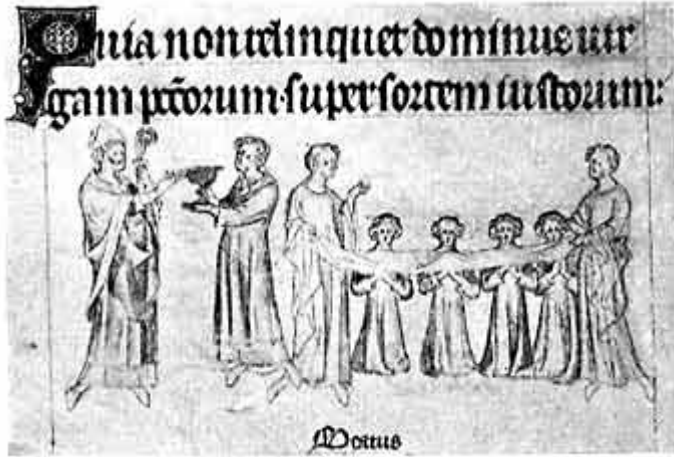 Quia non relinquet dominus uir
gam pct̄orum·super sortem iustorum: